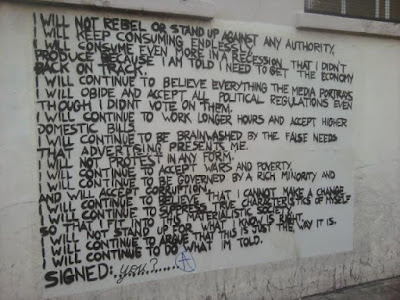 I WILL NOT REBEL OR STAND UP AGAINST ANY AUTHORITY,
I WILL KEEP CONSUMING ENDLESSLY,
I WILL CONSUME EVEN MORE IN A RECESSION, THAT I DIDN'T
PRODUCE BECAUSE I AM TOLD I NEED TO GET THE ECONOMY
BACK ON TRACK.
I WILL CONTINUE TO BELIEVE EVERYTHING THE MEDIA PORTRAYS
I WILL OBIDE AND ACCEPT ALL POLITICAL REGULATIONS EVEN
THOUGH I DIDNT VOTE ON THEM.
I WILL CONTINUE TO WORK LONGER HOURS AND ACCEPT HIGHER
DOMESTIC BILLS.
I WILL CONTINUE TO BE BRAINWASHED BY THE FALSE NEEDS
THAT ADVERTISING PRESENTS ME.
I WILL NOT PROTEST IN ANY FORM.
I WILL CONTINUE TO ACCEPT WARS AND POVERTY,
I WILL CONTINUE TO BE GOVERNED BY A RICH MINORITY AND
AND WILL ACCEPT CORRUPTION,
I WILL CONTINUE TO BELIEVE THAT I CANNOT MAKE A CHANGE
I WILL CONTINUE TO SUPPRESS TRUE CHARACTERISTICS OF MYSELF
SO THAT I FIT THIS MATERIALISTIC SOCIETY
I WILL NOT STAND UP FOR WHAT I KNOW IS RIGHT.
I WILL CONTINUE TO ARGUE THAT THIS IS JUST THE WAY IT IS.
I WILL CONTINUE TO DO WHAT IM TOLD.
SIGNED:.you.?......A